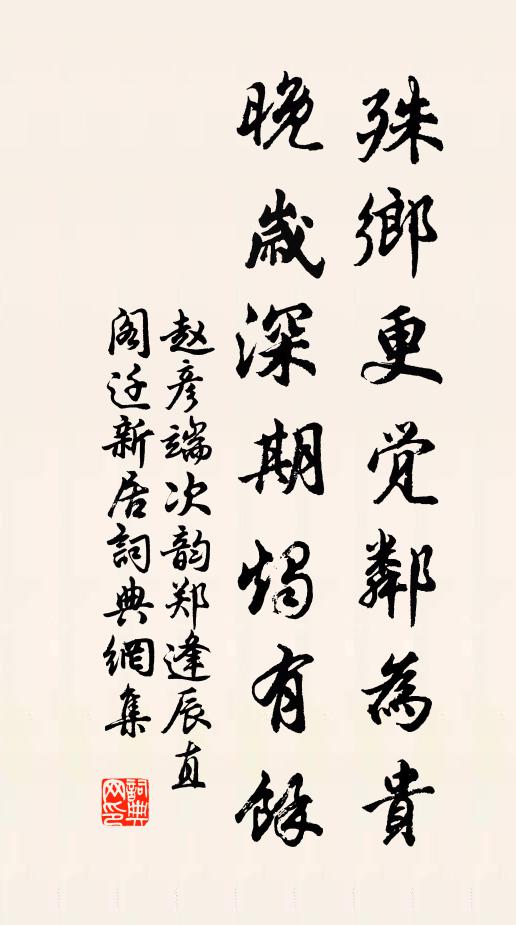 殊鄉更觉鄰為貴
晚歲深期燭有餘
赵彦端次韵郑逢辰直
阁迁新居詞典網集
詞典网印